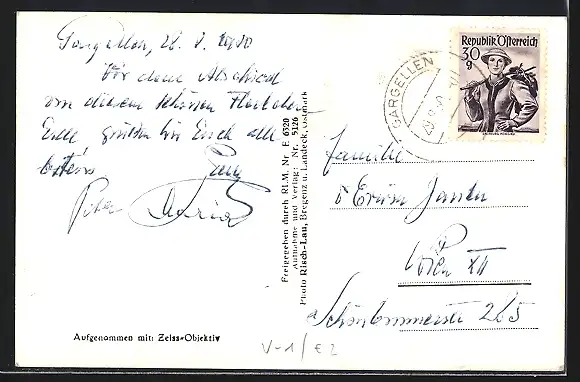 Gargellen, 28. 8. 1950
Vor dem Abschied
von diesem schönen Fleckchen
Erde grüßen wir Euch alle
bestens
Peter Maria
Freigegeben durch RLM. Nr E 6320
Aufnahme und Verlag: Nr. 5126
Photo Risch-Lau, Bregenz u. Landeck, Ostmark
GARGELLEN
Republik Österreich
30 g
Familie
Erwin
Wien XII
265
Aufgenommen mit: Zeiss-Objektiv
V-1/€2